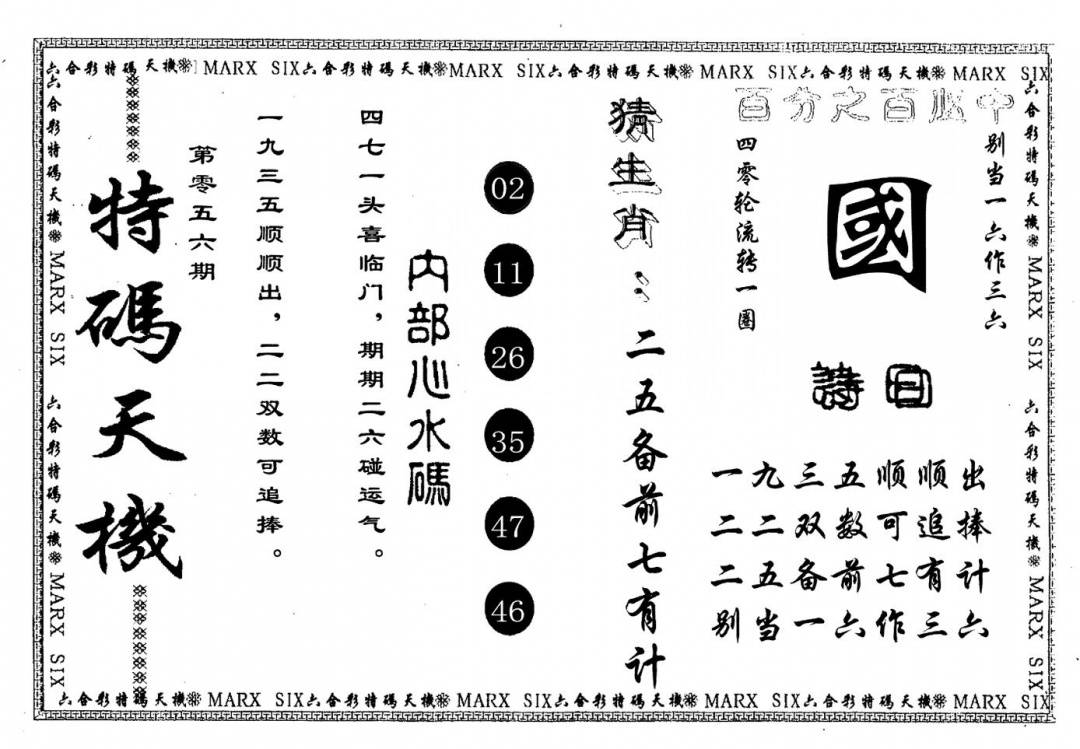 六合彩特碼天機 MARX SIX六合彩特碼天機MARX SIX六合彩特碼天機 MARX SIX六合彩特碼天機 MARX SIX
六合彩特碼天機 MARX SIX 六合彩特碼天機 MARX SIX
特碼天機
第零五六期
一九三五顺顺出，二二双数可追捧。
四七一头喜临门，期期二六碰运气。
内部心水碼
02
11
26
35
47
46
猜生肖：二五备前七有计
百分之百必中
四零轮流转一圈
國
别当一六作三六
詩曰
一九三五顺顺出
二二双数可追捧
二五备前七有计
别当一六作三六
六合彩特碼天機 MARX SIX 六合彩特碼天機 MARX SIX
六合彩特碼天機 MARX SIX六合彩特碼天機 MARX SIX六合彩特碼天機 MARX SIX六合彩特碼天機 MARX SIX